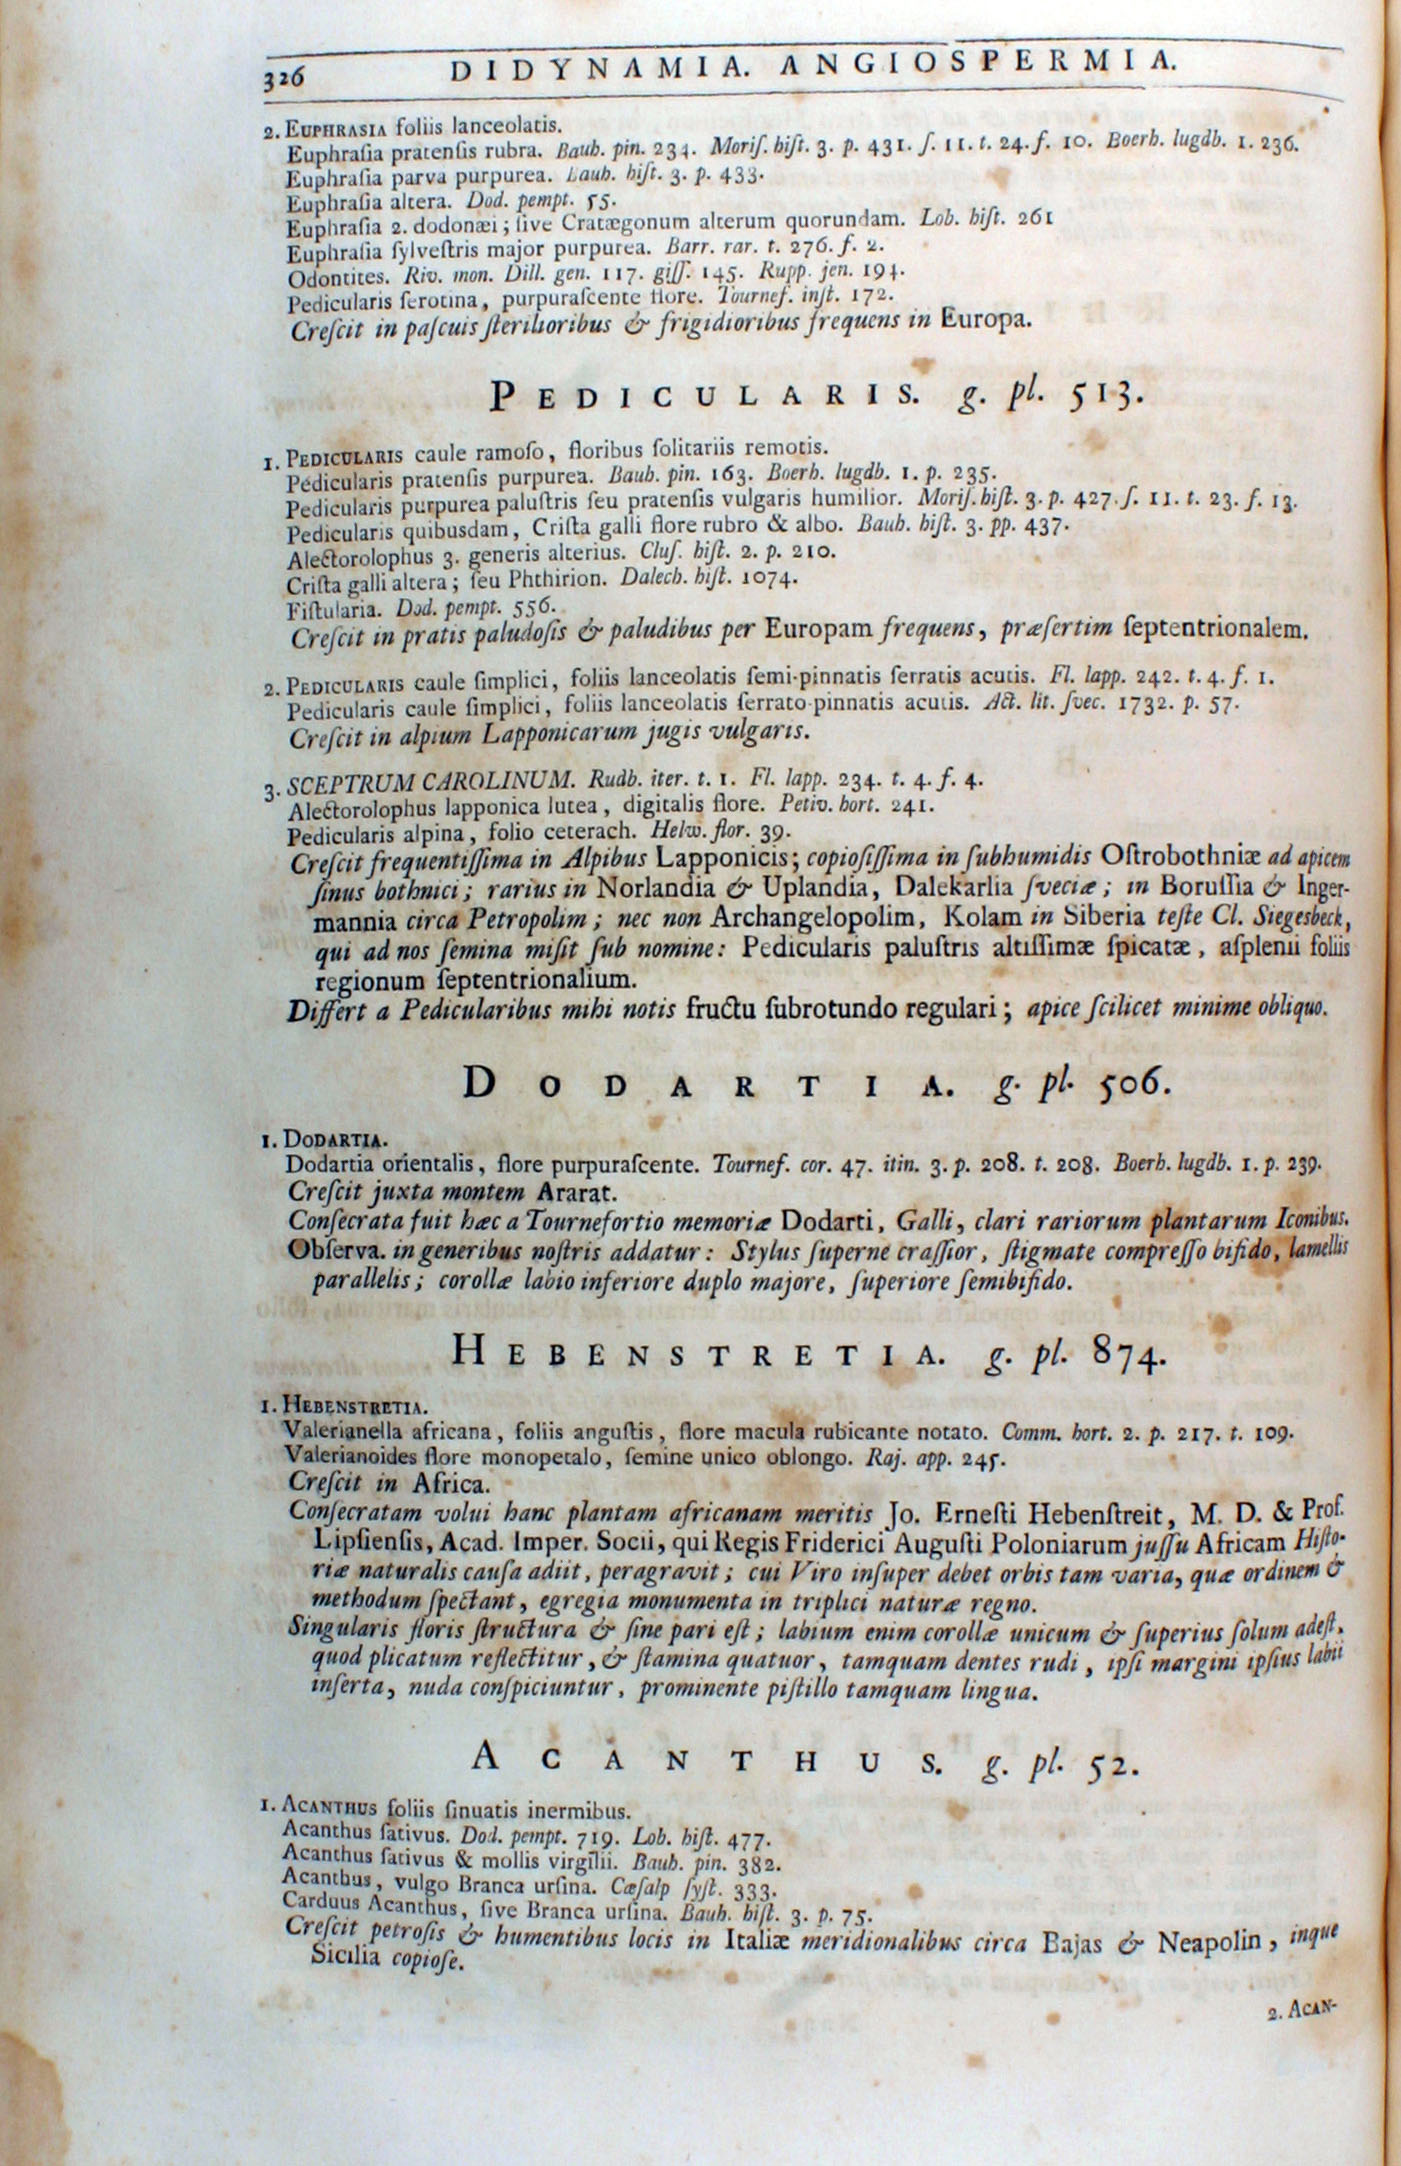 326 DIDYNAMIA. ANGIOSPERMIA.
2. EUPHRASIA foliis lanceolatis.
Euphraſia pratenſis rubra. Bauh. pin. 234. Moriſ. hiſt. 3. p. 431. ſ. 11. t. 24. f. 10. Boerh. lugdb. 1. 236.
Euphraſia parva purpurea. Bauh. hiſt. 3. p. 433.
Euphraſia altera. Dod. pempt. 55.
Euphraſia 2. dodonæi; ſive Cratægonum alterum quorundam. Lob. hiſt. 261
Euphraſia ſylveſtris major purpurea. Barr. rar. t. 276. f. 2.
Odontites. Riv. mon. Dill. gen. 117. giſſ. 145. Rupp. jen. 194.
Pedicularis ſerotina, purpuraſcente flore. Tournef. inſt. 172.
Creſcit in paſcuis ſterilioribus & frigidioribus frequens in Europa.
PEDICULARIS. g. pl. 513.
1. PEDICULARIS caule ramoſo, floribus ſolitariis remotis.
Pedicularis pratenſis purpurea. Bauh. pin. 163. Boerh. lugdb. 1. p. 235.
Pedicularis purpurea paluſtris ſeu pratenſis vulgaris humilior. Moriſ. hiſt. 3. p. 427. ſ. 11. t. 23. f. 13.
Pedicularis quibusdam, Criſta galli flore rubro & albo. Bauh. hiſt. 3. pp. 437.
Alectorolophus 3. generis alterius. Cluſ. hiſt. 2. p. 210.
Criſta galli altera; ſeu Phthirion. Dalech. hiſt. 1074.
Fiſtularia. Dod. pempt. 556.
Creſcit in pratis paludoſis & paludibus per Europam frequens, præſertim ſeptentrionalem.
2. PEDICULARIS caule ſimplici, foliis lanceolatis ſemi-pinnatis ſerratis acutis. Fl. lapp. 242. t. 4. f. 1.
Pedicularis caule ſimplici, foliis lanceolatis ſerrato-pinnatis acutis. Act. lit. ſvec. 1732. p. 57.
Creſcit in alpium Lapponicarum jugis vulgaris.
3. SCEPTRUM CAROLINUM. Rudb. iter. t. 1. Fl. lapp. 234. t. 4. f. 4.
Alectorolophus lapponica lutea, digitalis flore. Petiv. hort. 241.
Pedicularis alpina, folio ceterach. Helw. flor. 39.
Creſcit frequentiſſima in Alpibus Lapponicis; copioſiſſima in ſubhumidis Oſtrobothniæ ad apicem
ſinus bothnici; rarius in Norlandia & Uplandia, Dalekarlia ſveciæ; in Boruſſia & Inger-
mannia circa Petropolim; nec non Archangelopolim, Kolam in Siberia teſte Cl. Siegesbeck,
qui ad nos ſemina miſit ſub nomine: Pedicularis paluſtris altiſſimæ ſpicatæ, aſplenii foliis
regionum ſeptentrionalium.
Differt a Pedicularibus mihi notis fructu ſubrotundo regulari; apice ſcilicet minime obliquo.
DODARTIA. g. pl. 506.
1. DODARTIA.
Dodartia orientalis, flore purpuraſcente. Tournef. cor. 47. itin. 3. p. 208. t. 208. Boerh. lugdb. 1. p. 239.
Creſcit juxta montem Ararat.
Conſecrata fuit hæc a Tournefortio memoriæ Dodarti, Galli, clari rariorum plantarum Iconibus.
Obſerva. in generibus noſtris addatur: Stylus ſuperne craſſior, ſtigmate compreſſo bifido, lamellis
parallelis; corollæ labio inferiore duplo majore, ſuperiore ſemibifido.
HEBENSTRETIA. g. pl. 874.
1. HEBENSTRETIA.
Valerianella africana, foliis anguſtis, flore macula rubicante notato. Comm. hort. 2. p. 217. t. 109.
Valerianoides flore monopetalo, ſemine unico oblongo. Raj. app. 245.
Creſcit in Africa.
Conſecratam volui hanc plantam africanam meritis Jo. Erneſti Hebenſtreit, M. D. & Prof.
Lipſienſis, Acad. Imper. Socii, qui Regis Friderici Auguſti Poloniarum juſſu Africam Hiſto-
riæ naturalis cauſa adiit, peragravit; cui Viro inſuper debet orbis tam varia, quæ ordinem &
methodum ſpectant, egregia monumenta in triplici naturæ regno.
Singularis floris ſtructura & ſine pari eſt; labium enim corollæ unicum & ſuperius ſolum adeſt,
quod plicatum reflectitur, & ſtamina quatuor, tamquam dentes rudi, ipſi margini ipſius labii
inſerta, nuda conſpiciuntur, prominente piſtillo tamquam lingua.
ACANTHUS. g. pl. 52.
1. ACANTHUS foliis ſinuatis inermibus.
Acanthus ſativus. Dod. pempt. 719. Lob. hiſt. 477.
Acanthus ſativus & mollis virgilii. Bauh. pin. 382.
Acanthus, vulgo Branca urſina. Cæſalp ſyſt. 333.
Carduus Acanthus, ſive Branca urſina. Bauh. hiſt. 3. p. 75.
Creſcit petroſis & humentibus locis in Italiæ meridionalibus circa Bajas & Neapolin, inque
Sicilia copioſe.
2. ACAN-